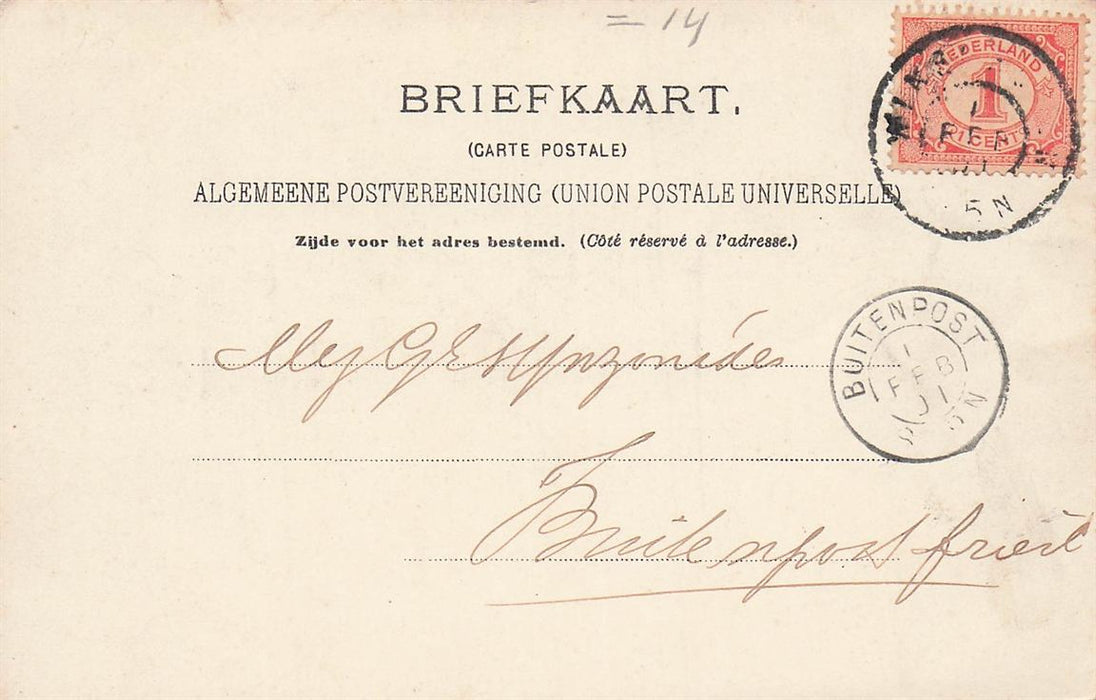 = 14
BRIEFKAART.
(CARTE POSTALE)
ALGEMEENE POSTVEREENIGING (UNION POSTALE UNIVERSELLE)
Zijde voor het adres bestemd. (Côté réservé à l'adresse.)
NEDERLAND
1
CENT
1 FEB
5 N
BUITENPOST
1
FEB
01
5 N
Mej
Buitenpost